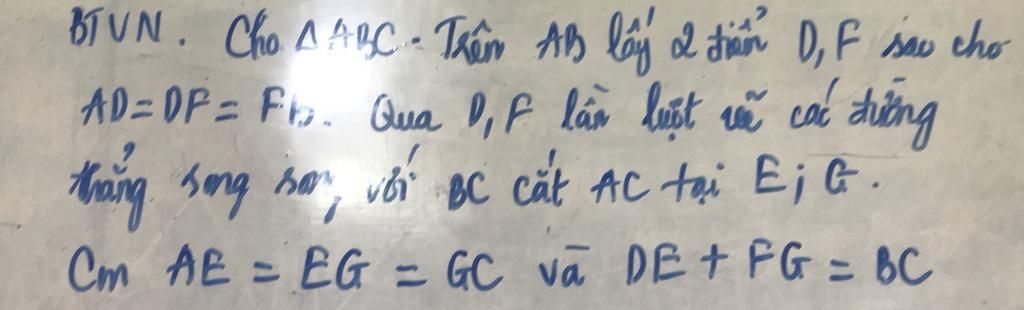 BTVN. Cho ΔABC. Trên AB lấy 2 điểm D, F sao cho
AD = DF = FB. Qua D, F lần lượt vẽ các đường
thẳng song song với BC cắt AC tại E; G.
Cm AE = EG = GC và DE + FG = BC